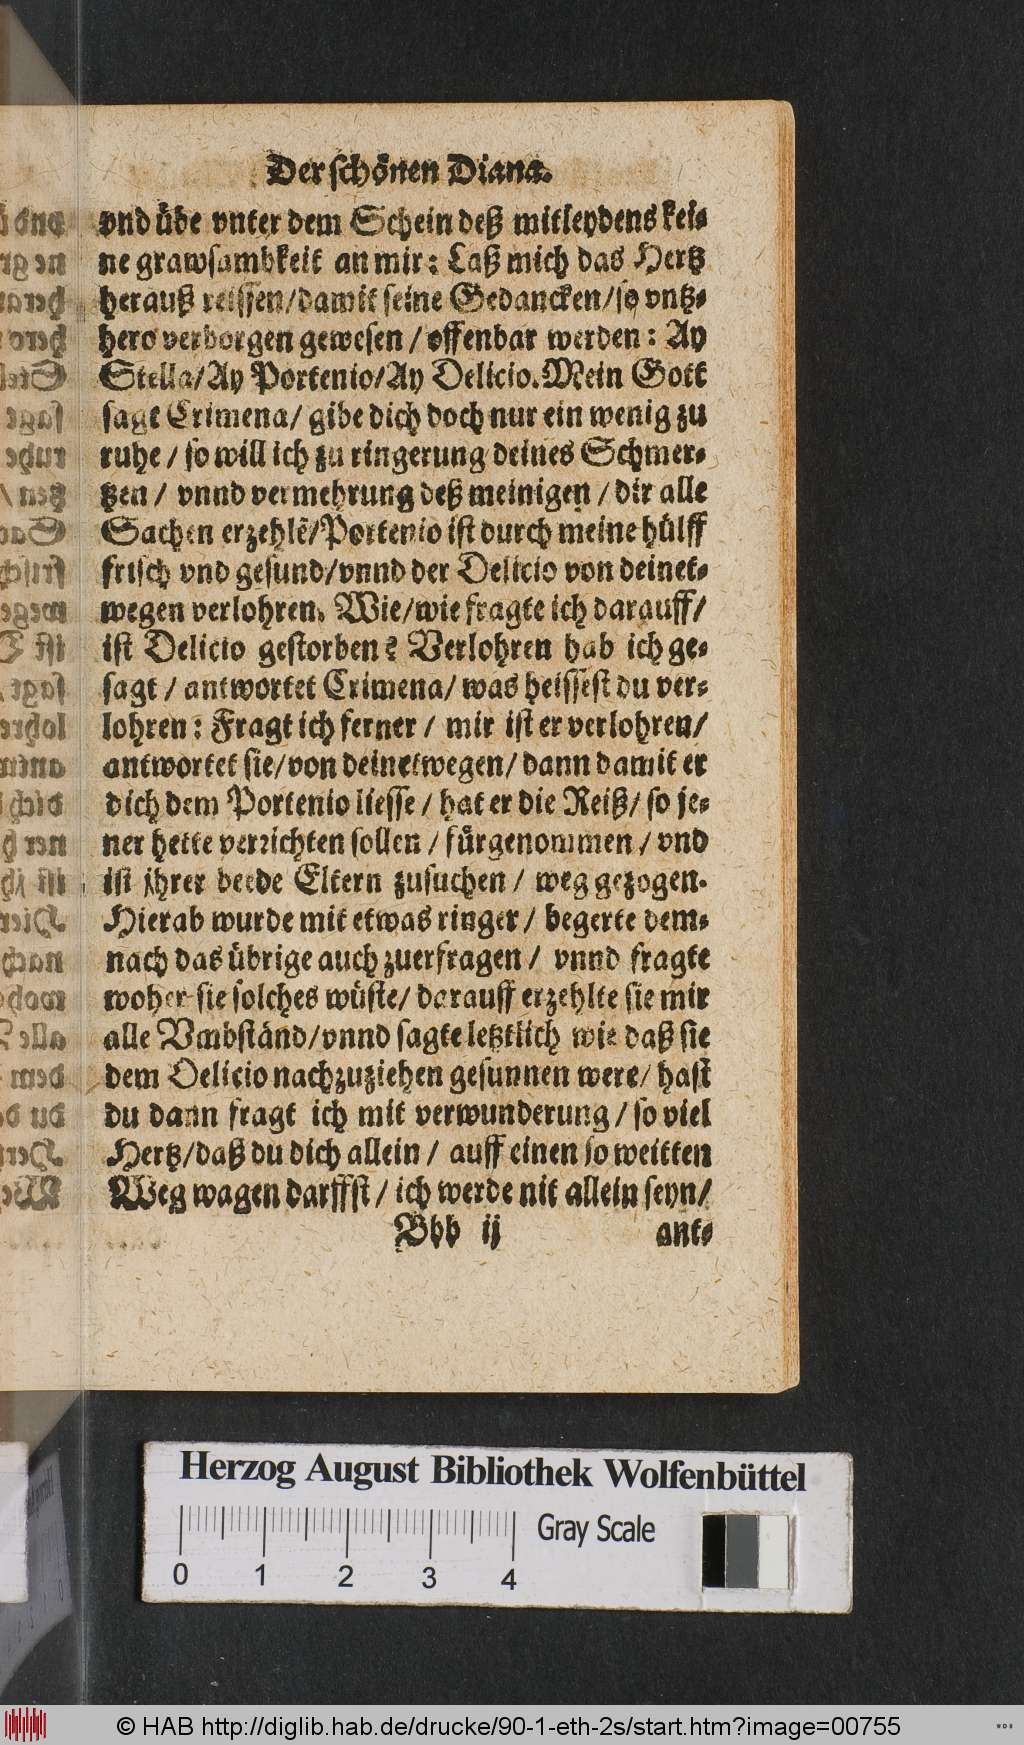 Der schönen Diana.
vnd übe vnter dem Schein deß mitleydens kei-
ne grawsambkeit an mir: Laß mich das Hertz
herauß reissen/damit seine Gedancken/so vntz-
hero verborgen gewesen / offenbar werden: Ay
Stella/Ay Partenio/Ay Delicio. Mein Gott
sagt Crimena/ gibe dich doch nur ein wenig zu
ruhe / so will ich zu ringerung deines Schmer-
tzen / vnnd vermehrung deß meinigen / dir alle
Sachen erzehlẽ/Portenio ist durch meine hülff
frisch vnd gesund/vnnd der Delicio von deinet-
wegen verlohren. Wie/wie fragte ich darauff/
ist Delicio gestorben? Verlohren hab ich ge-
sagt / antwortet Crimena/ was heissest du ver-
lohren: Fragt ich ferner / mir ist er verlohren/
antwortet sie/von deinetwegen/ dann damit er
dich dem Portenio liesse / hat er die Reiß/ so je-
ner hette verrichten sollen / fürgenommen / vnd
ist jhrer beede Eltern zusuchen / weg gezogen.
Hierab wurde mit etwas ringer / begerte dem-
nach das übrige auch zuerfragen / vnnd fragte
woher sie solches wüste/ darauff erzehlte sie mir
alle Vmbständ/vnnd sagte letztlich wie daß sie
dem Delicio nachzuziehen gesunnen were/ hast
du dann fragt ich mit verwunderung / so viel
Hertz/daß du dich allein / auff einen so weitten
Weg wagen darffst / ich werde nit allein seyn/
Bbb ij ant-
Herzog August Bibliothek Wolfenbüttel
Gray Scale
0 1 2 3 4
© HAB http://diglib.hab.de/drucke/90-1-eth-2s/start.htm?image=00755